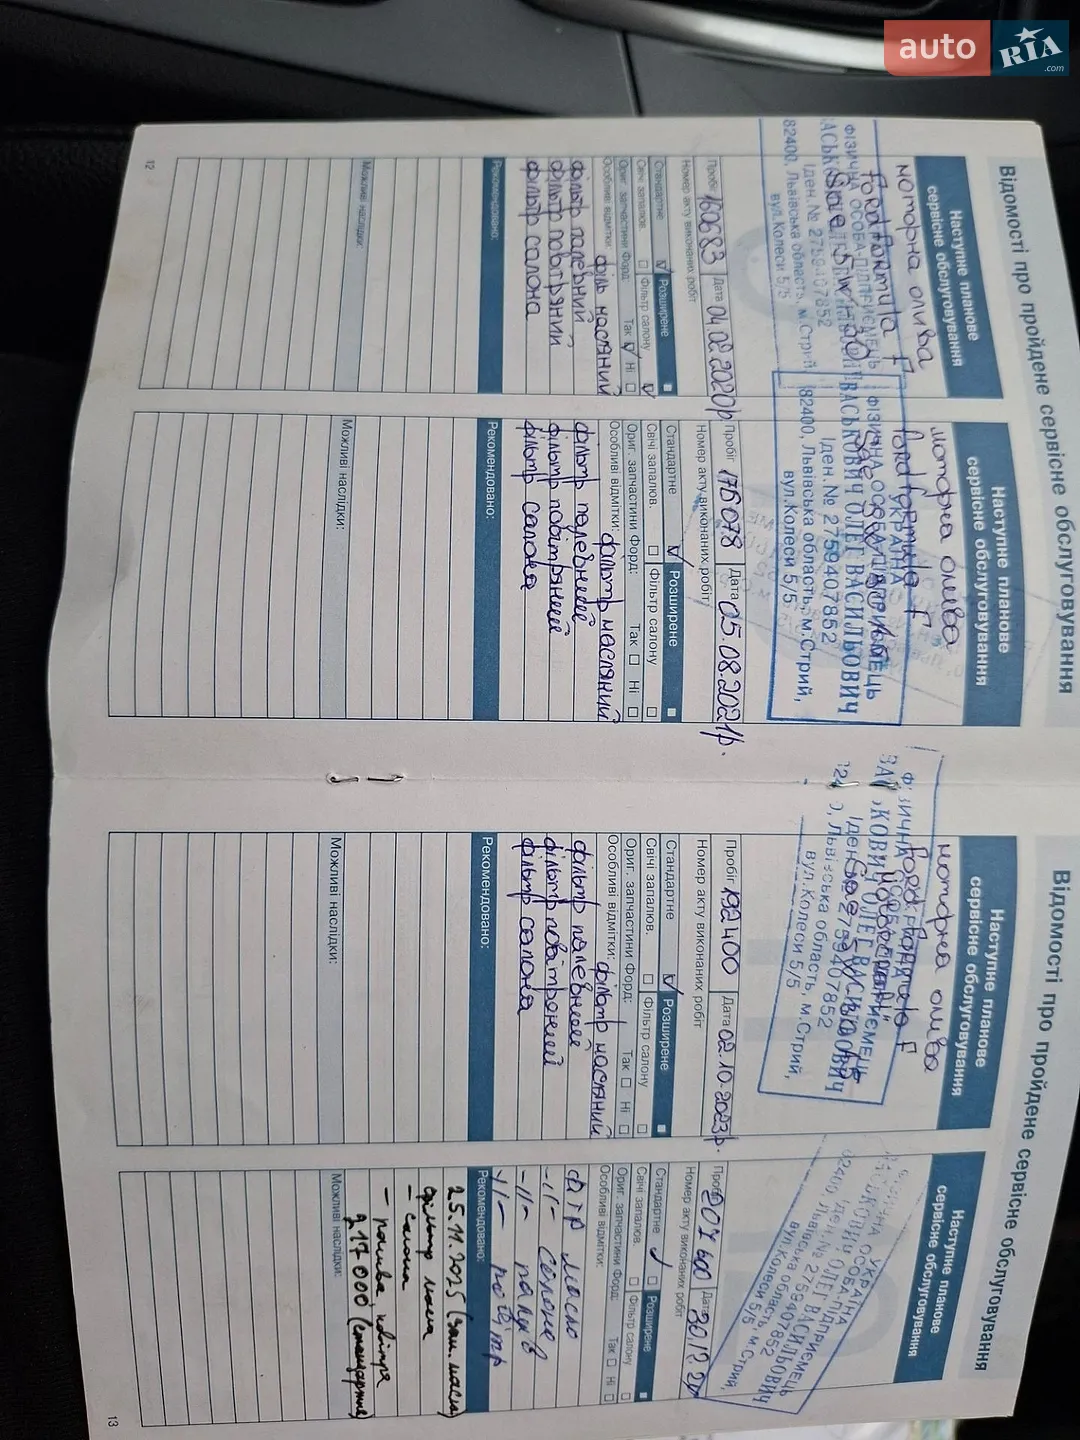 auto RIA.com
Відомості про пройдене сервісне обслуговування
Наступне планове
сервісне обслуговування
моторна олива
Ford Formula F
ФІЗИЧНА ОСОБА-ПІДПРИЄМЕЦЬ
Іден.№ 2759407852
82400, Львівська область, м.Стрий
вул.Колеси 5/5
Пробіг 160683 Дата 04.02.2020р
Номер акту виконаних робіт
Стандартне Розширене
Свічі запалюв. Фільтр салону
Ориг. запчастини Форд: Так Ні
Особливі відмітки: філь масляний
фільтр палевний,
фільтр повітряний
фільтр салона
Рекомендовано:
Можливі наслідки:
12
Наступне планове
сервісне обслуговування
моторна олива
Ford Formula F
УКРАЇНА
ФІЗИЧНА ОСОБА-ПІДПРИЄМЕЦЬ
ВАСЬКОВИЧ ОЛЕГ ВАСИЛЬОВИЧ
Іден.№ 2759407852
82400, Львівська область, м.Стрий,
вул.Колеси 5/5
Пробіг 176078 Дата 05.08.2021р.
Номер акту виконаних робіт
Стандартне Розширене
Свічі запалюв. Фільтр салону
Ориг. запчастини Форд: Так Ні
Особливі відмітки: фільтр масляний
фільтр палевний
фільтр повітряний
фільтр салона
Рекомендовано:
Можливі наслідки:
Відомості про пройдене сервісне обслуговування
Наступне планове
сервісне обслуговування
моторна олива
Ford Formula F
Іден.№ 2759407852
Львівська область, м.Стрий,
вул.Колеси 5/5
Пробіг 192400 Дата 02.10.2023р.
Номер акту виконаних робіт
Стандартне Розширене
Свічі запалюв. Фільтр салону
Ориг. запчастини Форд: Так Ні
Особливі відмітки: фільтр масляний
фільтр палевний
фільтр повітряний
фільтр салона
Рекомендовано:
Можливі наслідки:
Наступне планове
сервісне обслуговування
УКРАЇНА
ВАСЬКОВИЧ ОЛЕГ ВАСИЛЬОВИЧ
Іден.№ 2759407852
82400, Львівська область, м.Стрий,
вул.Колеси 5/5
Пробіг 207600 Дата 30.12
Номер акту виконаних робіт
Стандартне Розширене
Свічі запалюв. Фільтр салону
Ориг. запчастини Форд: Так Ні
Особливі відмітки:
масло
-//- салона
-//-
-//-
Рекомендовано:
25.11.2025 (зам. масла)
фільтр масла
- салона
- палива, повітря
217 000 (стандартне)
Можливі наслідки:
13